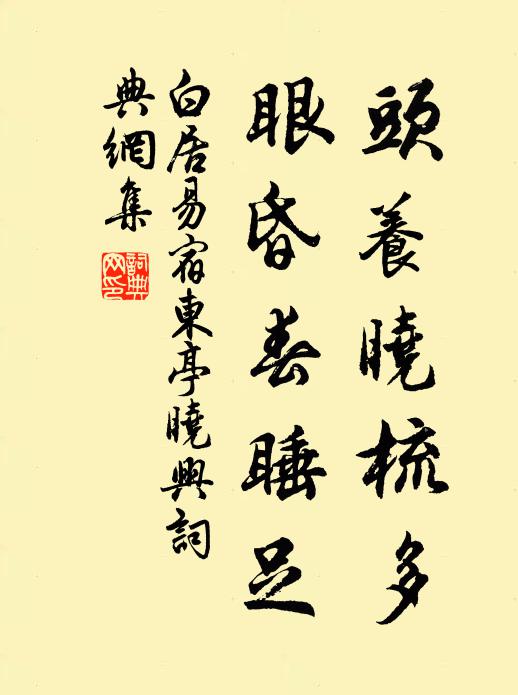 頭養曉梳多
眼昏春睡足
白居易宿東亭曉興詞
典網集
詞典网印